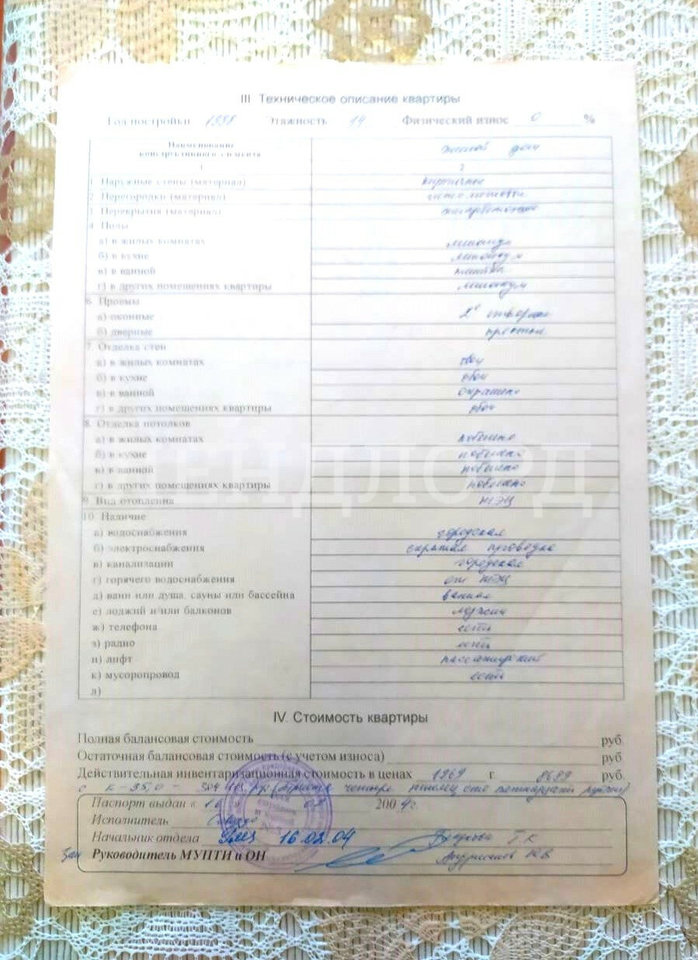 III Техническое описание квартиры
Год постройки 1998 Этажность 14 Физический износ 0 %
Наименование конструктивного элемента жилой дом
1 2
1. Наружные стены (материал) кирпичные
2. Перегородки (материал)
3. Перекрытия (материал) железобетонные
4. Полы
а) в жилых комнатах линолеум
б) в кухне линолеум
в) в ванной плитка
г) в других помещениях квартиры линолеум
6. Проемы
а) оконные 2е створные
б) дверные простые
7. Отделка стен
а) в жилых комнатах обои
б) в кухне обои
в) в ванной окрашено
г) в других помещениях квартиры обои
8. Отделка потолков
а) в жилых комнатах побелено
б) в кухне побелено
в) в ванной побелено
г) в других помещениях квартиры побелено
9. Вид отопления
10. Наличие
а) водоснабжения городское
б) электроснабжения скрытая проводка
в) канализации городская
г) горячего водоснабжения от
д) ванн или душа, сауны или бассейна ванная
е) лоджий и/или балконов лоджии
ж) телефона есть
з) радио есть
и) лифт пассажирский
к) мусоропровод есть
л)
ЛЕНДЛОРД
IV. Стоимость квартиры
Полная балансовая стоимость руб
Остаточная балансовая стоимость (с учетом износа) руб
Действительная инвентаризационная стоимость в ценах 1969 г 8689 руб
с к-35,0 -
Паспорт выдан « 16 02 2004г.
Исполнитель
Начальник отдела 16.02.04 Т.К
Зам Руководитель МУПТИ и ОН